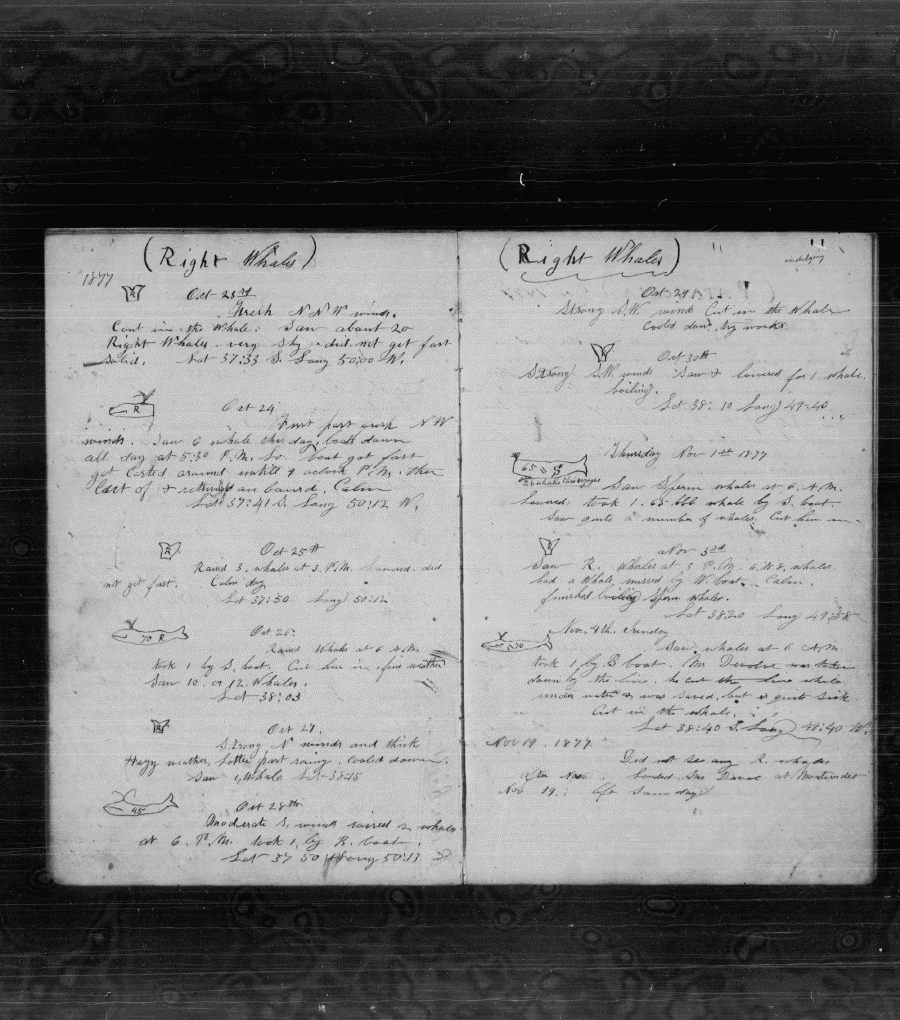 (Right Whales)
1877
R
Oct 23rd
Fresh N N W winds.
Cout in the Whale: Saw about 20
Right Whales very shy did not get fast
solid. Lat 37:33 S. Long 50:00 W.
R
Oct 24
First part fresh NW
winds. Saw 6 whale this day, boats down
all day at 5:30 P.M. boat got fast
got around untill 9 oclock P.M. then
Cast of & an board. Calm
Lat 37:41 S. Long 50:12 W.
R
Oct 25th
Raised 3 whales at 3 P.M. Lowered. did
not get fast. Calm day
Lat 37:50 Long 50:12
70 R
Oct 26
Raised Whale at 6 A.M.
took 1 by S. boat. Cut him in fine weather
Saw 10 or 12 Whales.
Lat 38:03
R
Oct 27.
Strong N winds and thick
Hazy weather, latter part rainy, cooled down.
Saw 1 Whale Lat 38:15
45
Oct 28th
Moderate S. winds raised 2 whales
at 6 P.M. took 1, by B. boat.
Lat 37 50 Long 50:13
(Right Whales)
Oct 29
Strong S.W. winds Cut in the Whale
Cooled down try works
R
Oct 30th
Strong S.W. winds Saw & lowered for 1 whale.
boiling.
Lat 38:10 Long 49:40
Thursday Nov 1st 1877
65
Saw Sperm whales at 6 A.M.
Lowered. took 1. 65 bbl whale by S. boat.
Saw quite a number of whales. Cut him in
R
Nov 3rd
Saw R. Whales at 5 P.M. 6 to 8 whales
had a Whale missed by W. boat. Calm.
finished boiling Sperm whales.
Lat 38:20 Long 49:38
Nov. 4th. Sunday
70
Saw whales at 6 A.M.
took 1 by B boat. Mr was taken
down by the line. he cut the line while
under water & was saved, but is quite sick
Cut in the whale.
Lat 38:40 S. Long 48:40 W.
Nov 19. 1877
Did not see any R. whales
landed Mr at Montevideo
Nov 19.: same day